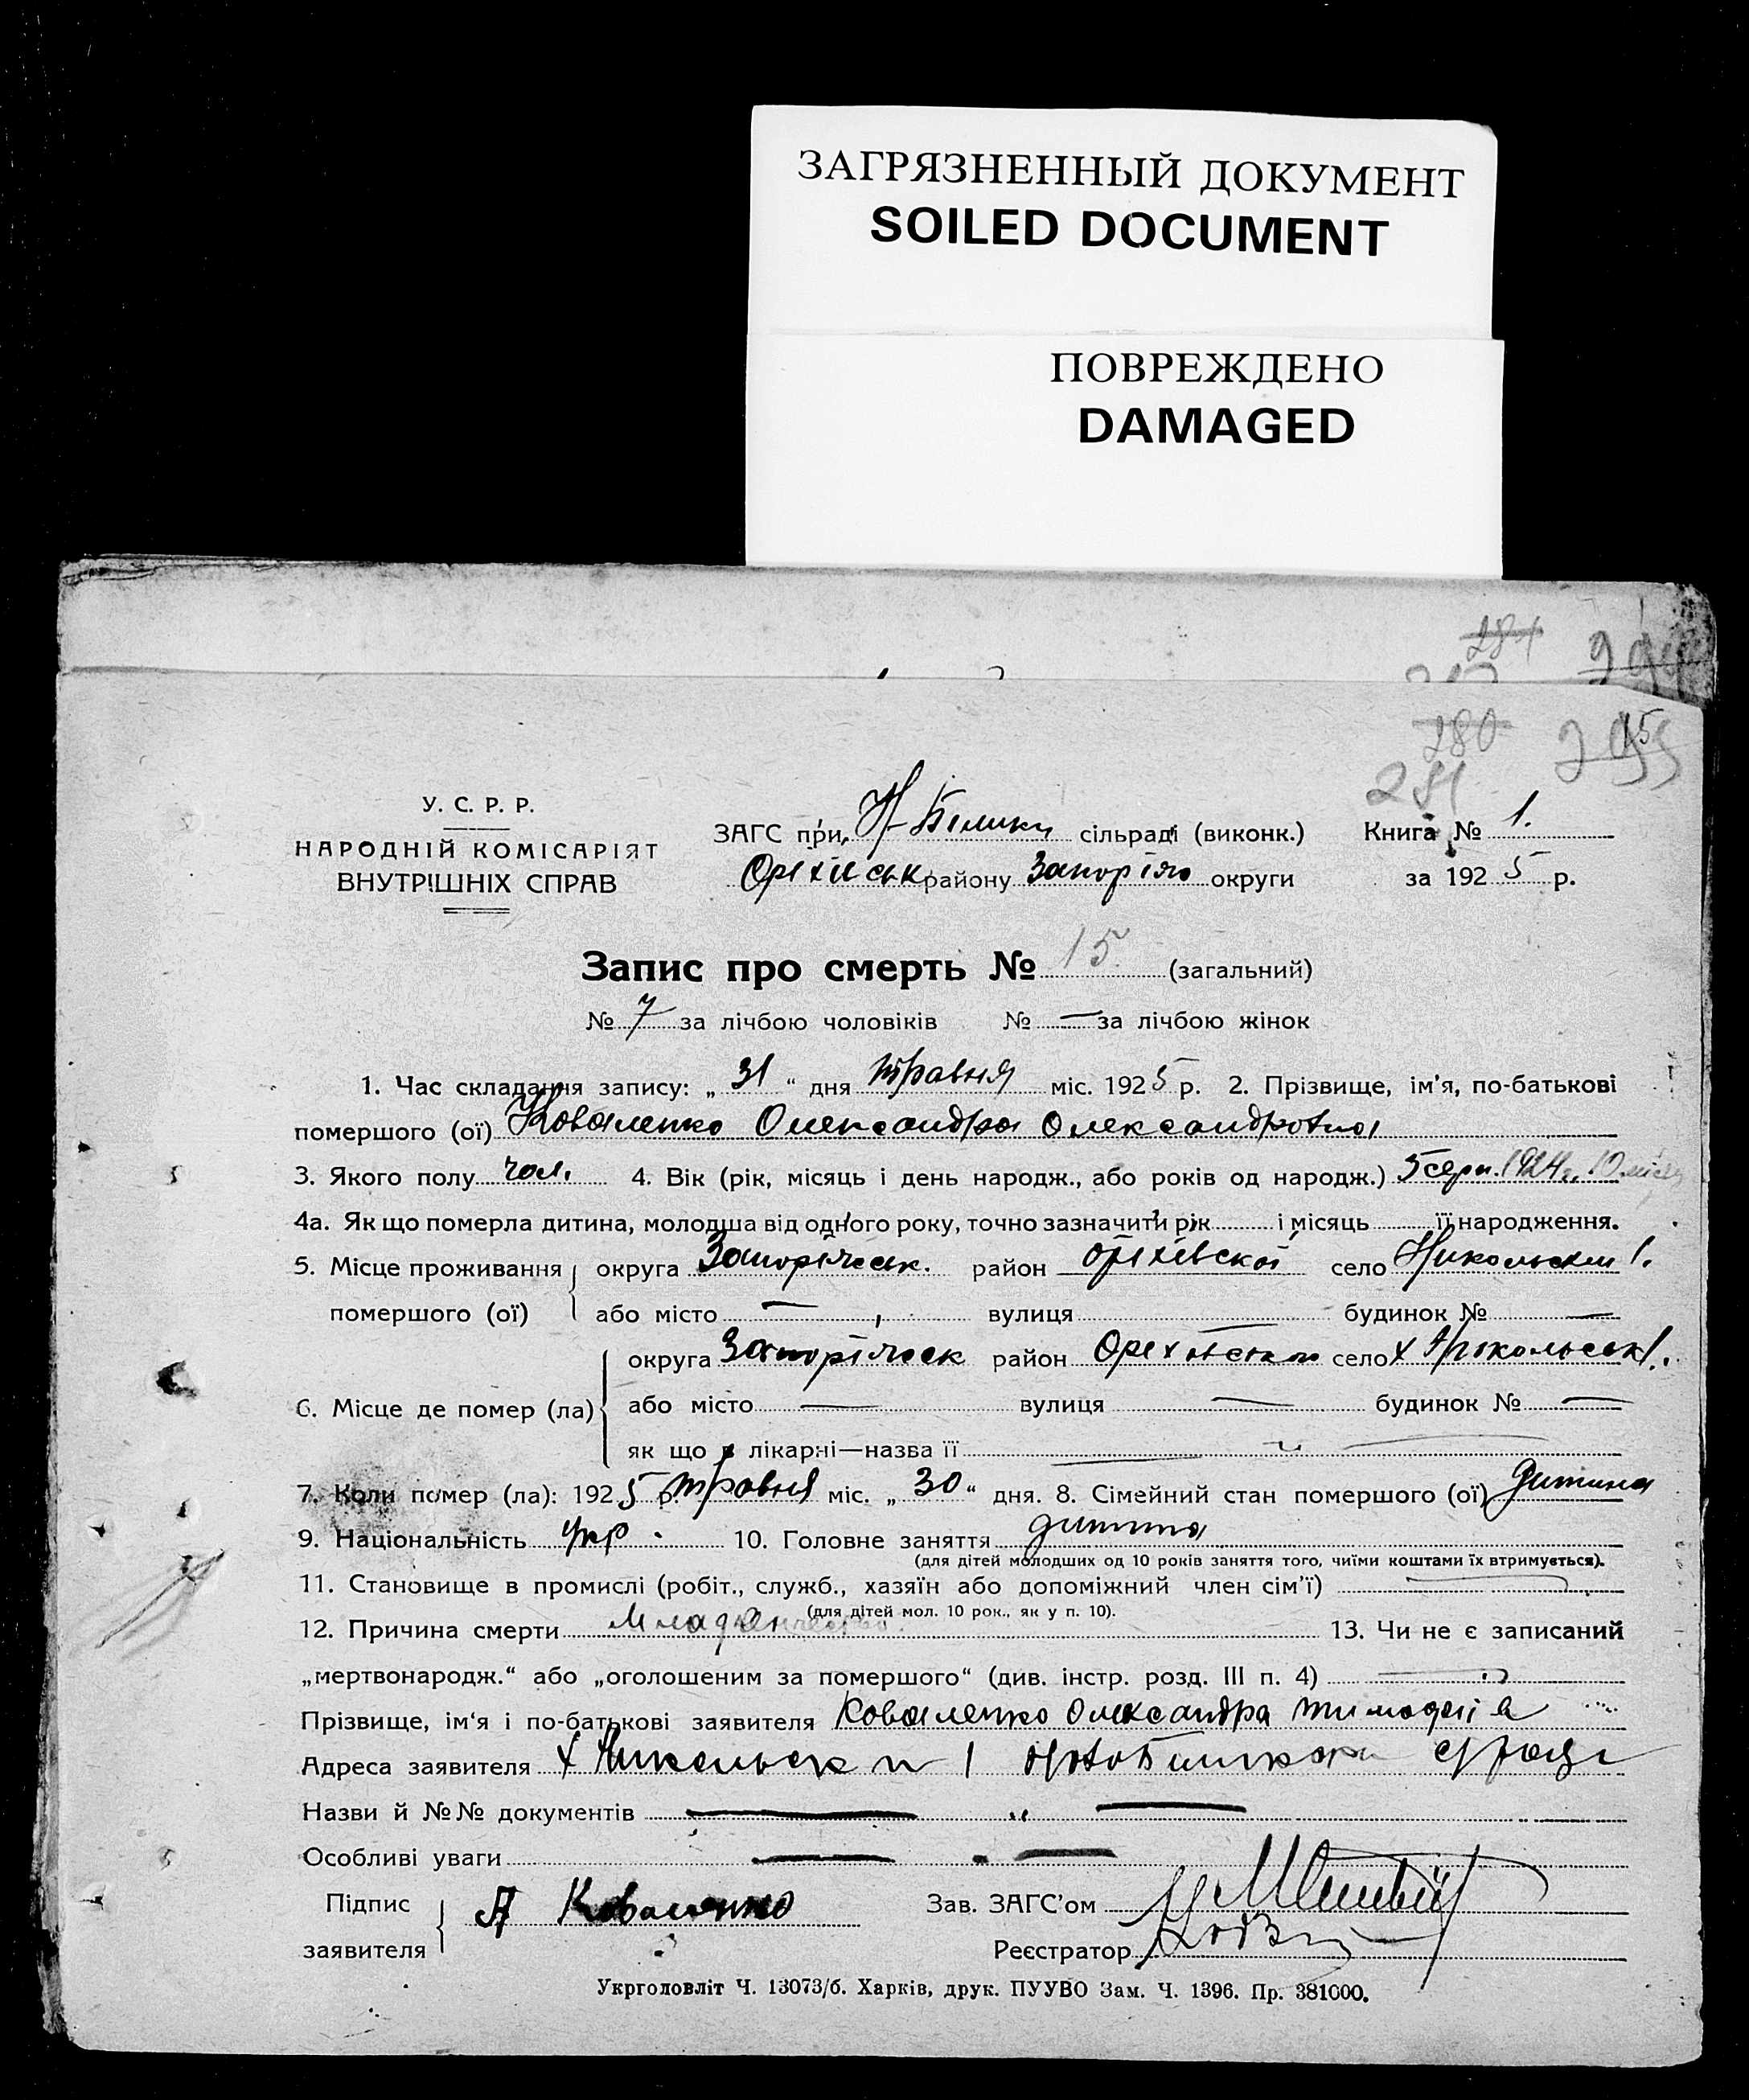 ЗАГРЯЗНЕННЫЙ ДОКУМЕНТ
SOILED DOCUMENT
ПОВРЕЖДЕНО
DAMAGED
284
280
281
295
У. С. Р. Р.
НАРОДНІЙ КОМІСАРІЯТ
ВНУТРІШНІХ СПРАВ
ЗАГС при Н-Білики сільраді (виконк.)
Оріхівськ району Запоріж округи
Книга № 1.
за 1925 р.
Запис про смерть № 15 (загальний)
№ 7 за лічбою чоловіків № — за лічбою жінок
1. Час складання запису: „31“ дня травня міс. 1925 р. 2. Прізвище, ім'я, по-батькові
помершого (ої) Коваленко Олександра Олександровна
3. Якого полу чол. 4. Вік (рік, місяць і день народж., або років од народж.) 5 серп. 1924 г. 10 місяц
4а. Як що померла дитина, молодша від одного року, точно зазначити рік і місяць її народження.
5. Місце проживання округа Запоріжськ. район Оріхівской село Никольский 1.
помершого (ої) або місто — вулиця — будинок № —
округа Запоріжськ район село х Никольськ 1.
6. Місце де помер (ла) або місто — вулиця — будинок № —
як що в лікарні—назва її —
7. Коли помер (ла): 1925 р. травня міс. „30“ дня. 8. Сімейний стан помершого (ої) дитина
9. Національність укр. 10. Головне заняття дитина
(для дітей молодших од 10 років заняття того, чиїми коштами їх втримується).
11. Становище в промислі (робіт., служб., хазяїн або допоміжний член сім'ї) —
(для дітей мол. 10 рок., як у п. 10).
12. Причина смерти Младенчество 13. Чи не є записаний
„мертвонародж.“ або „оголошеним за помершого“ (див. інстр. розд. III п. 4) —
Прізвище, ім'я і по-батькові заявителя Коваленко Олександра
Адреса заявителя х Никольськ 1
Назви й №№ документів —
Особливі уваги —
Підпис заявителя А Коваленко Зав. ЗАГС'ом
Реєстратор
Укрголовліт Ч. 13073/б. Харків, друк. ПУУВО Зам. Ч. 1396. Пр. 381000.